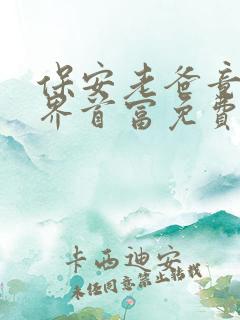 保安老爸竟
界首富免费
卡西迪安
未经同意禁止转载